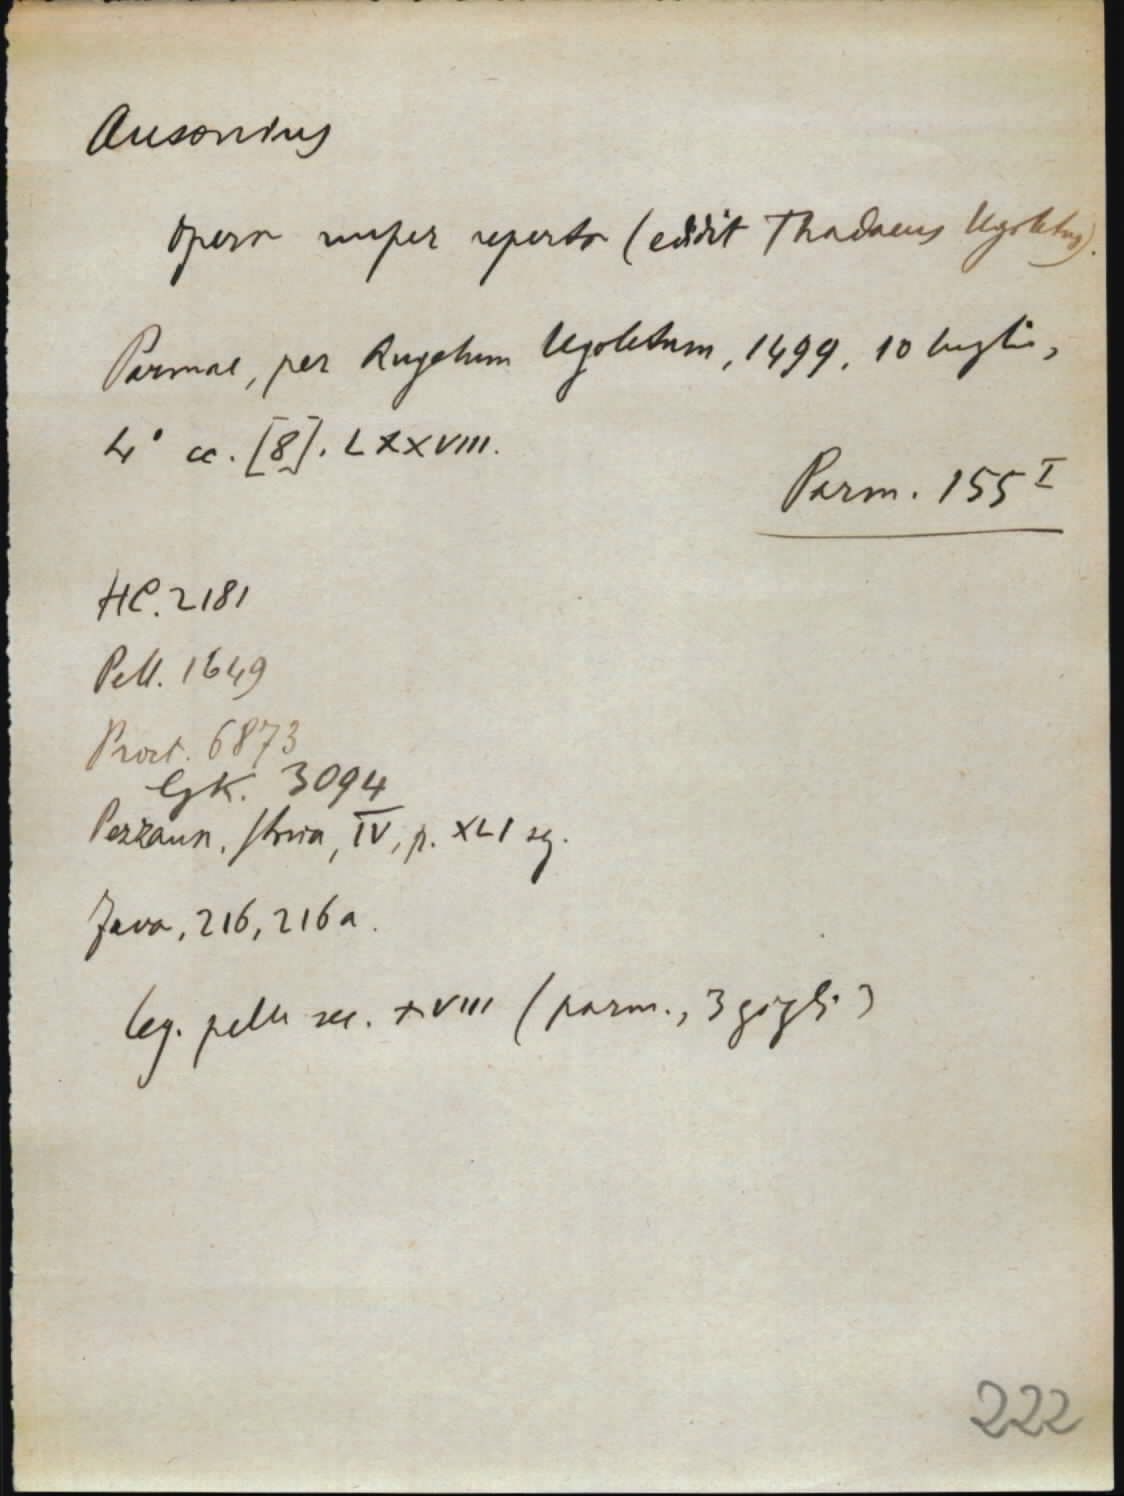 Ausonius
Opera nuper reperta (edidit Thadaeus Ugoletus).
Parmae, per Angelum Ugoletum, 1499, 10 luglio,
4° cc. [8]. LXXVIII.
Parm. 155 I
HC. 2181
Pell. 1649
Proct. 6873
GK. 3094
Pezzana, Storia, IV, p. XLI sg.
Fava, 216, 216a.
leg. pelle sec. XVIII (parm., 3 gigli)
222